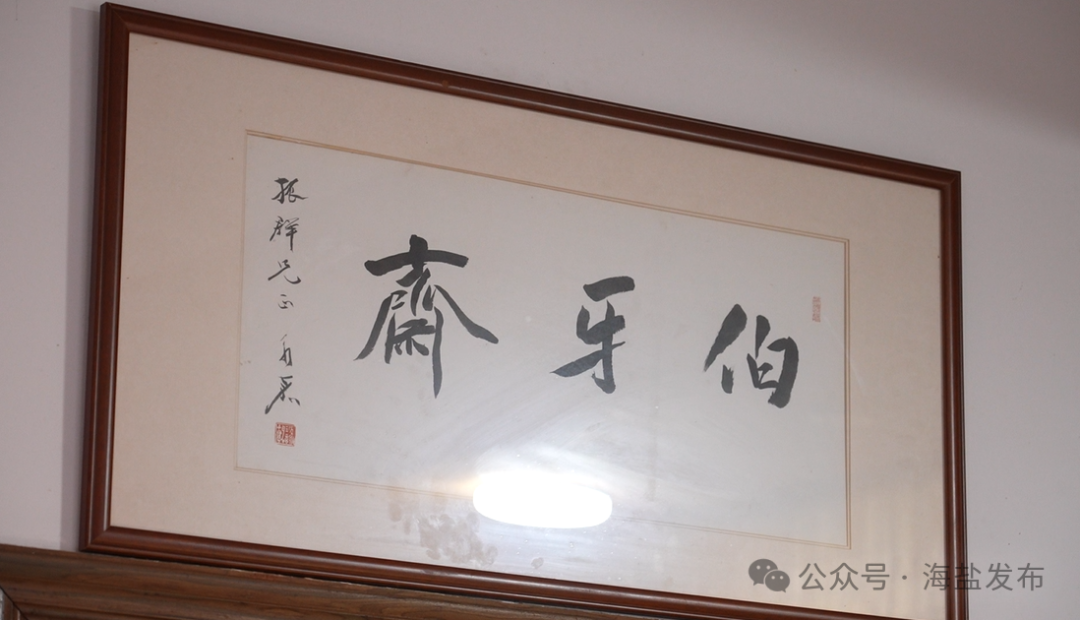 伯牙齋
振群兄正
公众号·海盐发布